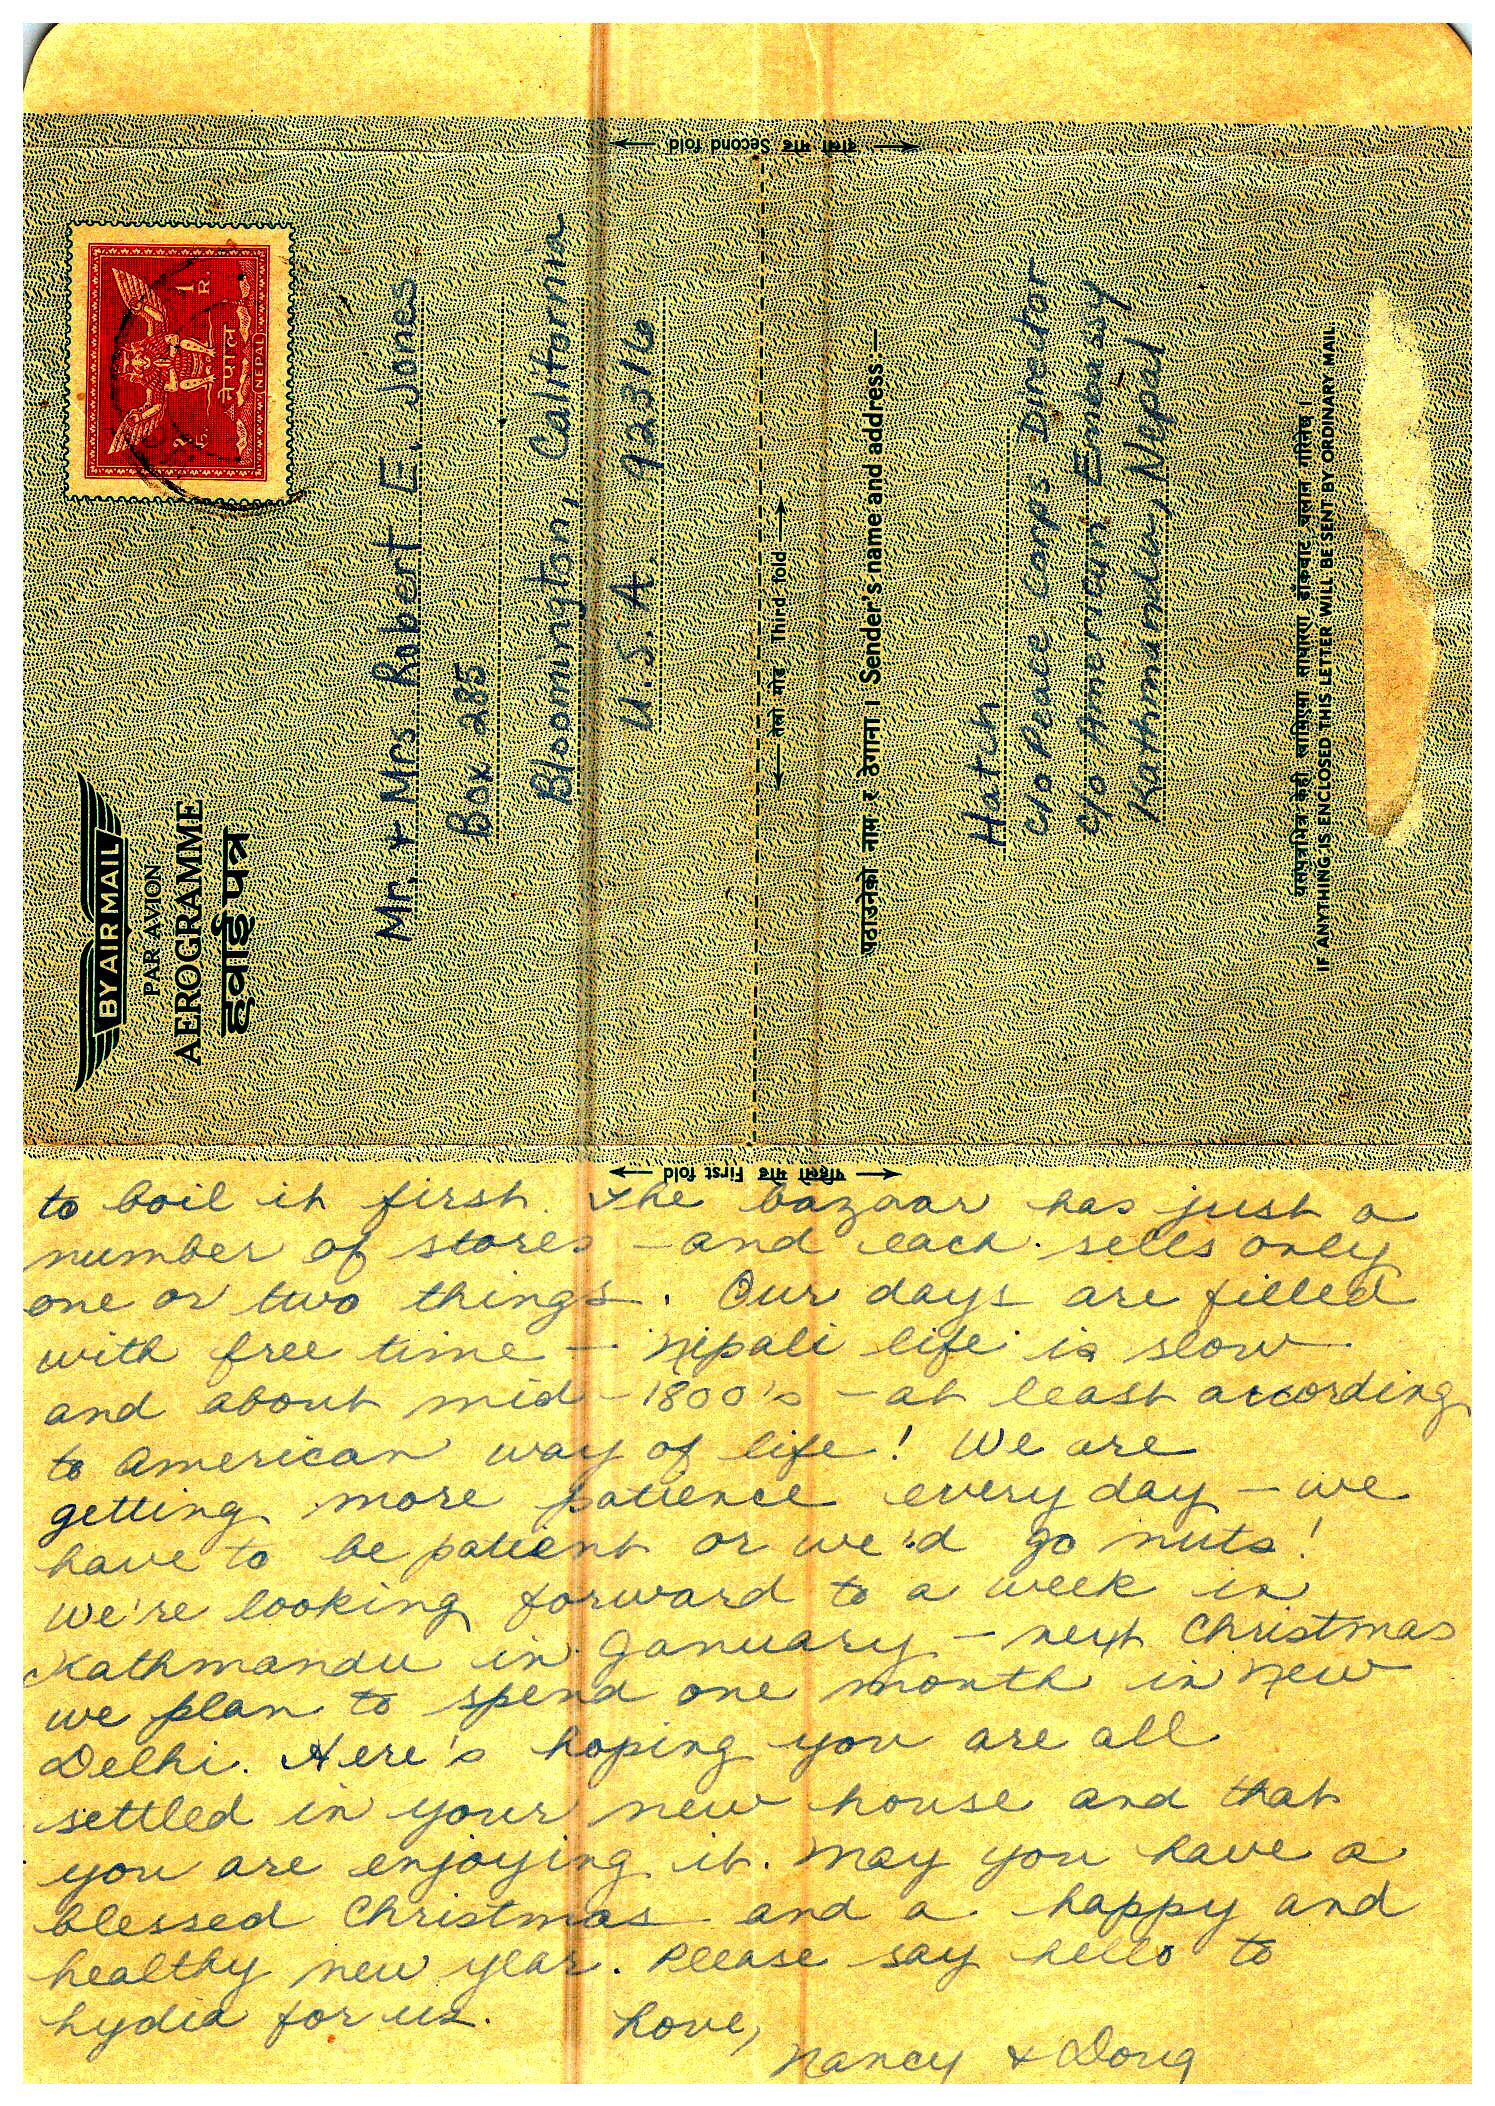 दोस्रो मोड Second fold
१ रु.
1 R.
नेपाल
NEPAL
BY AIR MAIL
PAR AVION
AEROGRAMME
हवाई पत्र
Mr. & Mrs Robert E. Jones
Box 285
Bloomington, California
U.S.A. 92316
तेस्रो मोड Third fold
पठाउनेको नाम र ठेगाना । Sender's name and address:—
Hatch
c/o Peace Corps Director
c/o American Embassy
Kathmandu, Nepal
यसपत्रभित्र केही राखिएमा साधारण डाँकबाट चलान गरिनेछ ।
IF ANYTHING IS ENCLOSED THIS LETTER WILL BE SENT BY ORDINARY MAIL
पहिलो मोड First fold
to boil it first. The bazaar has just a
number of stores – and each sells only
one or two things. Our days are filled
with free time – Nepali life is slow
and about mid – 1800's – at least according
to American way of life! We are
getting more patience every day – we
have to be patient or we'd go nuts!
We're looking forward to a week in
Kathmandu in January – next Christmas
we plan to spend one month in New
Delhi. Here's hoping you are all
settled in your new house and that
you are enjoying it. May you have a
blessed Christmas and a happy and
healthy new year. Please say hello to
Lydia for us. Love,
Nancy & Doug